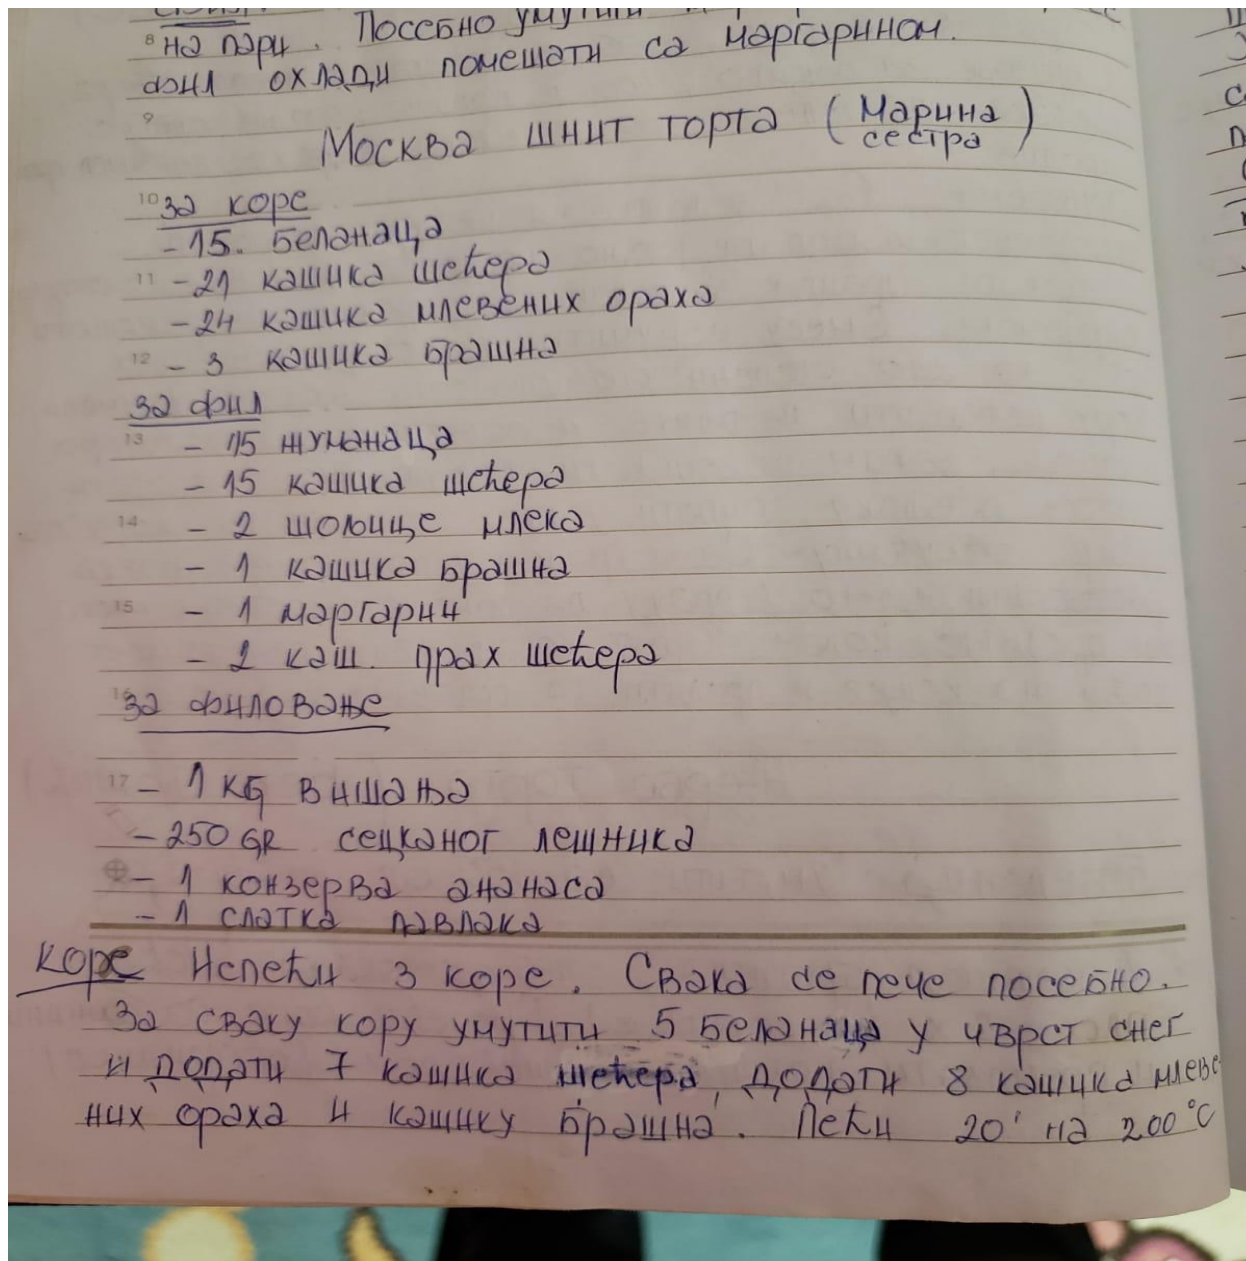 8 на пари. Посебно умутити
фил охлади помешати са маргарином.
9
Москва шнит торта (Марина сестра)
10 за коре
- 15. беланаца
11 - 21 кашика шећера
- 24 кашика млевених ораха
12 - 3 кашика брашна
за фил
13 - 15 жуманаца
- 15 кашика шећера
14 - 2 шољице млека
- 1 кашика брашна
15 - 1 маргарин
- 2 каш. прах шећера
16 за филовање
17 - 1 KG вишања
- 250 GR сецканог лешника
- 1 конзерва ананаса
- 1 слатка павлака
Коре Испећи 3 коре. Свака се пече посебно.
За сваку кору умутити 5 беланаца у чврст снег
и додати 7 кашика шећера, додати 8 кашика млеве
них ораха и кашику брашна. Пећи 20' на 200°C